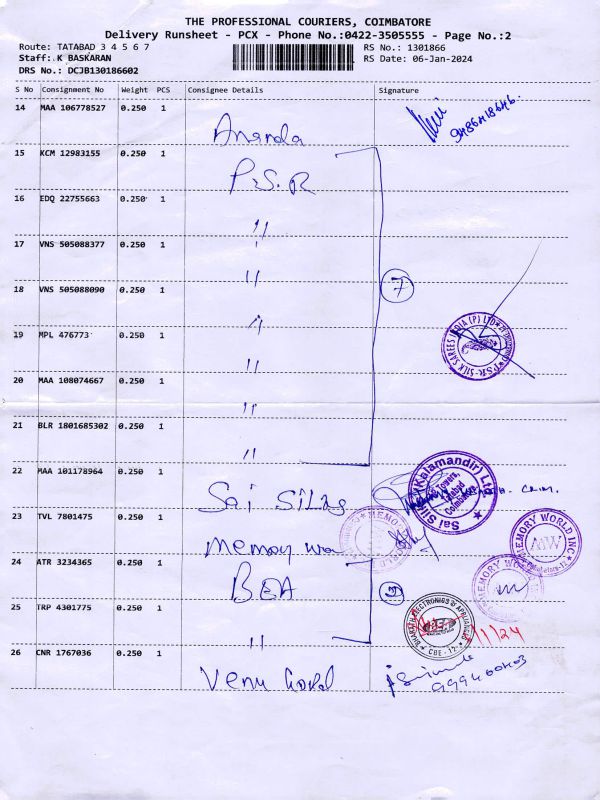 THE PROFESSIONAL COURIERS, COIMBATORE
Delivery Runsheet - PCX - Phone No.:0422-3505555 - Page No.:2
Route: TATABAD 3 4 5 6 7 RS No.: 1301866
Staff: K BASKARAN RS Date: 06-Jan-2024
DRS No.: DCJB130186602
S No Consignment No Weight PCS Consignee Details Signature
14 MAA 106778527 0.250 1
Ananda 9486418646
15 KCM 12983155 0.250 1
P.S.R
16 EDQ 22755663 0.250 1
"
17 VNS 505088377 0.250 1
"
18 VNS 505088090 0.250 1 7
"
19 MPL 476773 0.250 1
"
20 MAA 108074667 0.250 1
"
21 BLR 1801685302 0.250 1
"
22 MAA 101178964 0.250 1
Sai Silks
Sai Silks (Kalamandir) Ltd.
Towers, Tatabad Coimbatore
23 TVL 7801475 0.250 1
Memory
MEMORY WORLD INC
MW
24 ATR 3234365 0.250 1
MEMORY WORLD
25 TRP 4301775 0.250 1
"
BHARATH ELECTRONICS & APPLIANCES
CBE - 12
/1/24
26 CNR 1767036 0.250 1
Venu Gopal